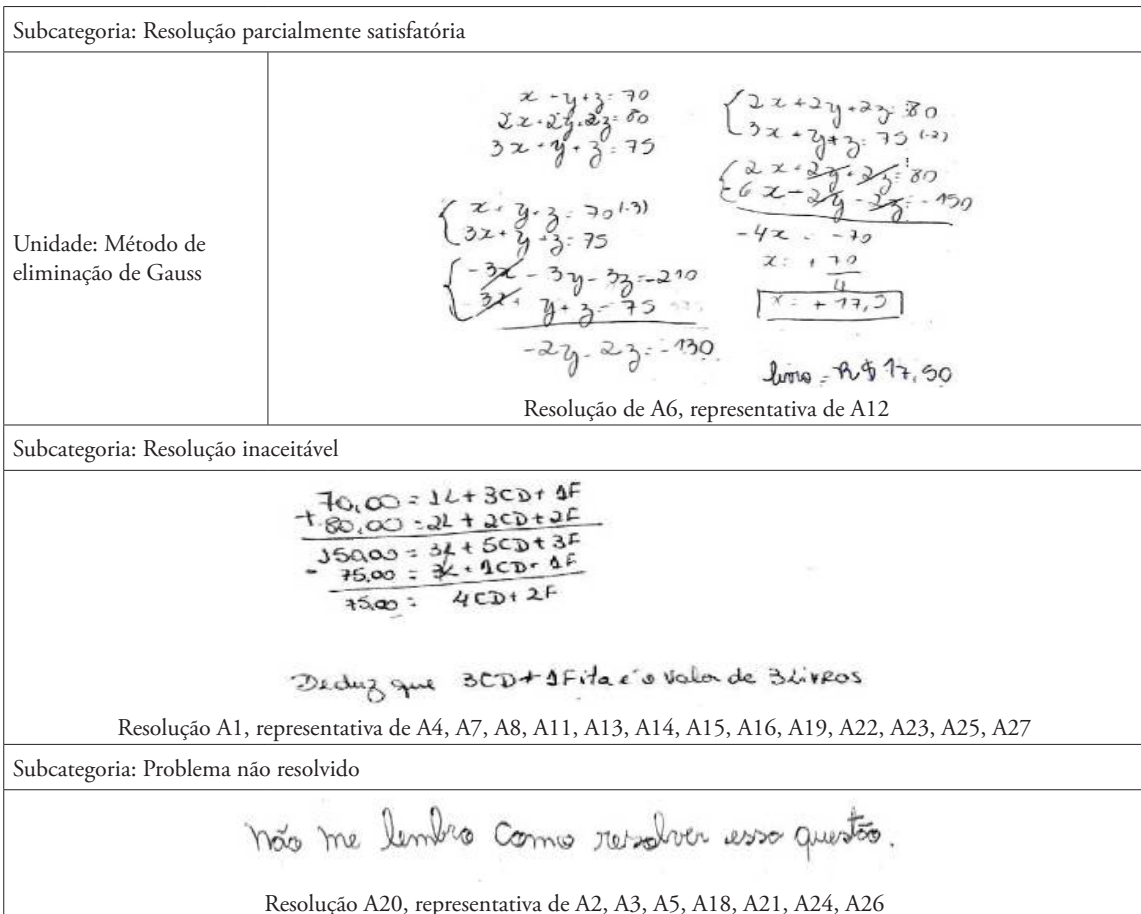 Subcategoria: Resolução parcialmente satisfatória
Unidade: Método de
eliminação de Gauss
x - y + z = 70
2x + 2y + 2z = 80
3x + y + z = 75
{ x + y + z = 70 (-3)
3x + y + z = 75
{ -3x - 3y - 3z = -210
3x + y + z = 75
-2y - 2z = -130
{ 2x + 2y + 2z = 80
3x + y + z = 75 (-2)
{ 2x + 2y + 2z = 80
-6x - 2y - 2z = -150
-4x = -70
x = + 70
4
x = + 17,5
livro = R$ 17,50
Resolução de A6, representativa de A12
Subcategoria: Resolução inaceitável
70,00 = 1L + 3CD + 1F
+ 80,00 = 2L + 2CD + 2F
150,00 = 3L + 5CD + 3F
- 75,00 = 3L + 1CD + 1F
75,00 = 4CD + 2F
Deduz que 3CD + 1Fita é o valor de 3 LivROS
Resolução A1, representativa de A4, A7, A8, A11, A13, A14, A15, A16, A19, A22, A23, A25, A27
Subcategoria: Problema não resolvido
Não me lembro como resolver essa questão.
Resolução A20, representativa de A2, A3, A5, A18, A21, A24, A26